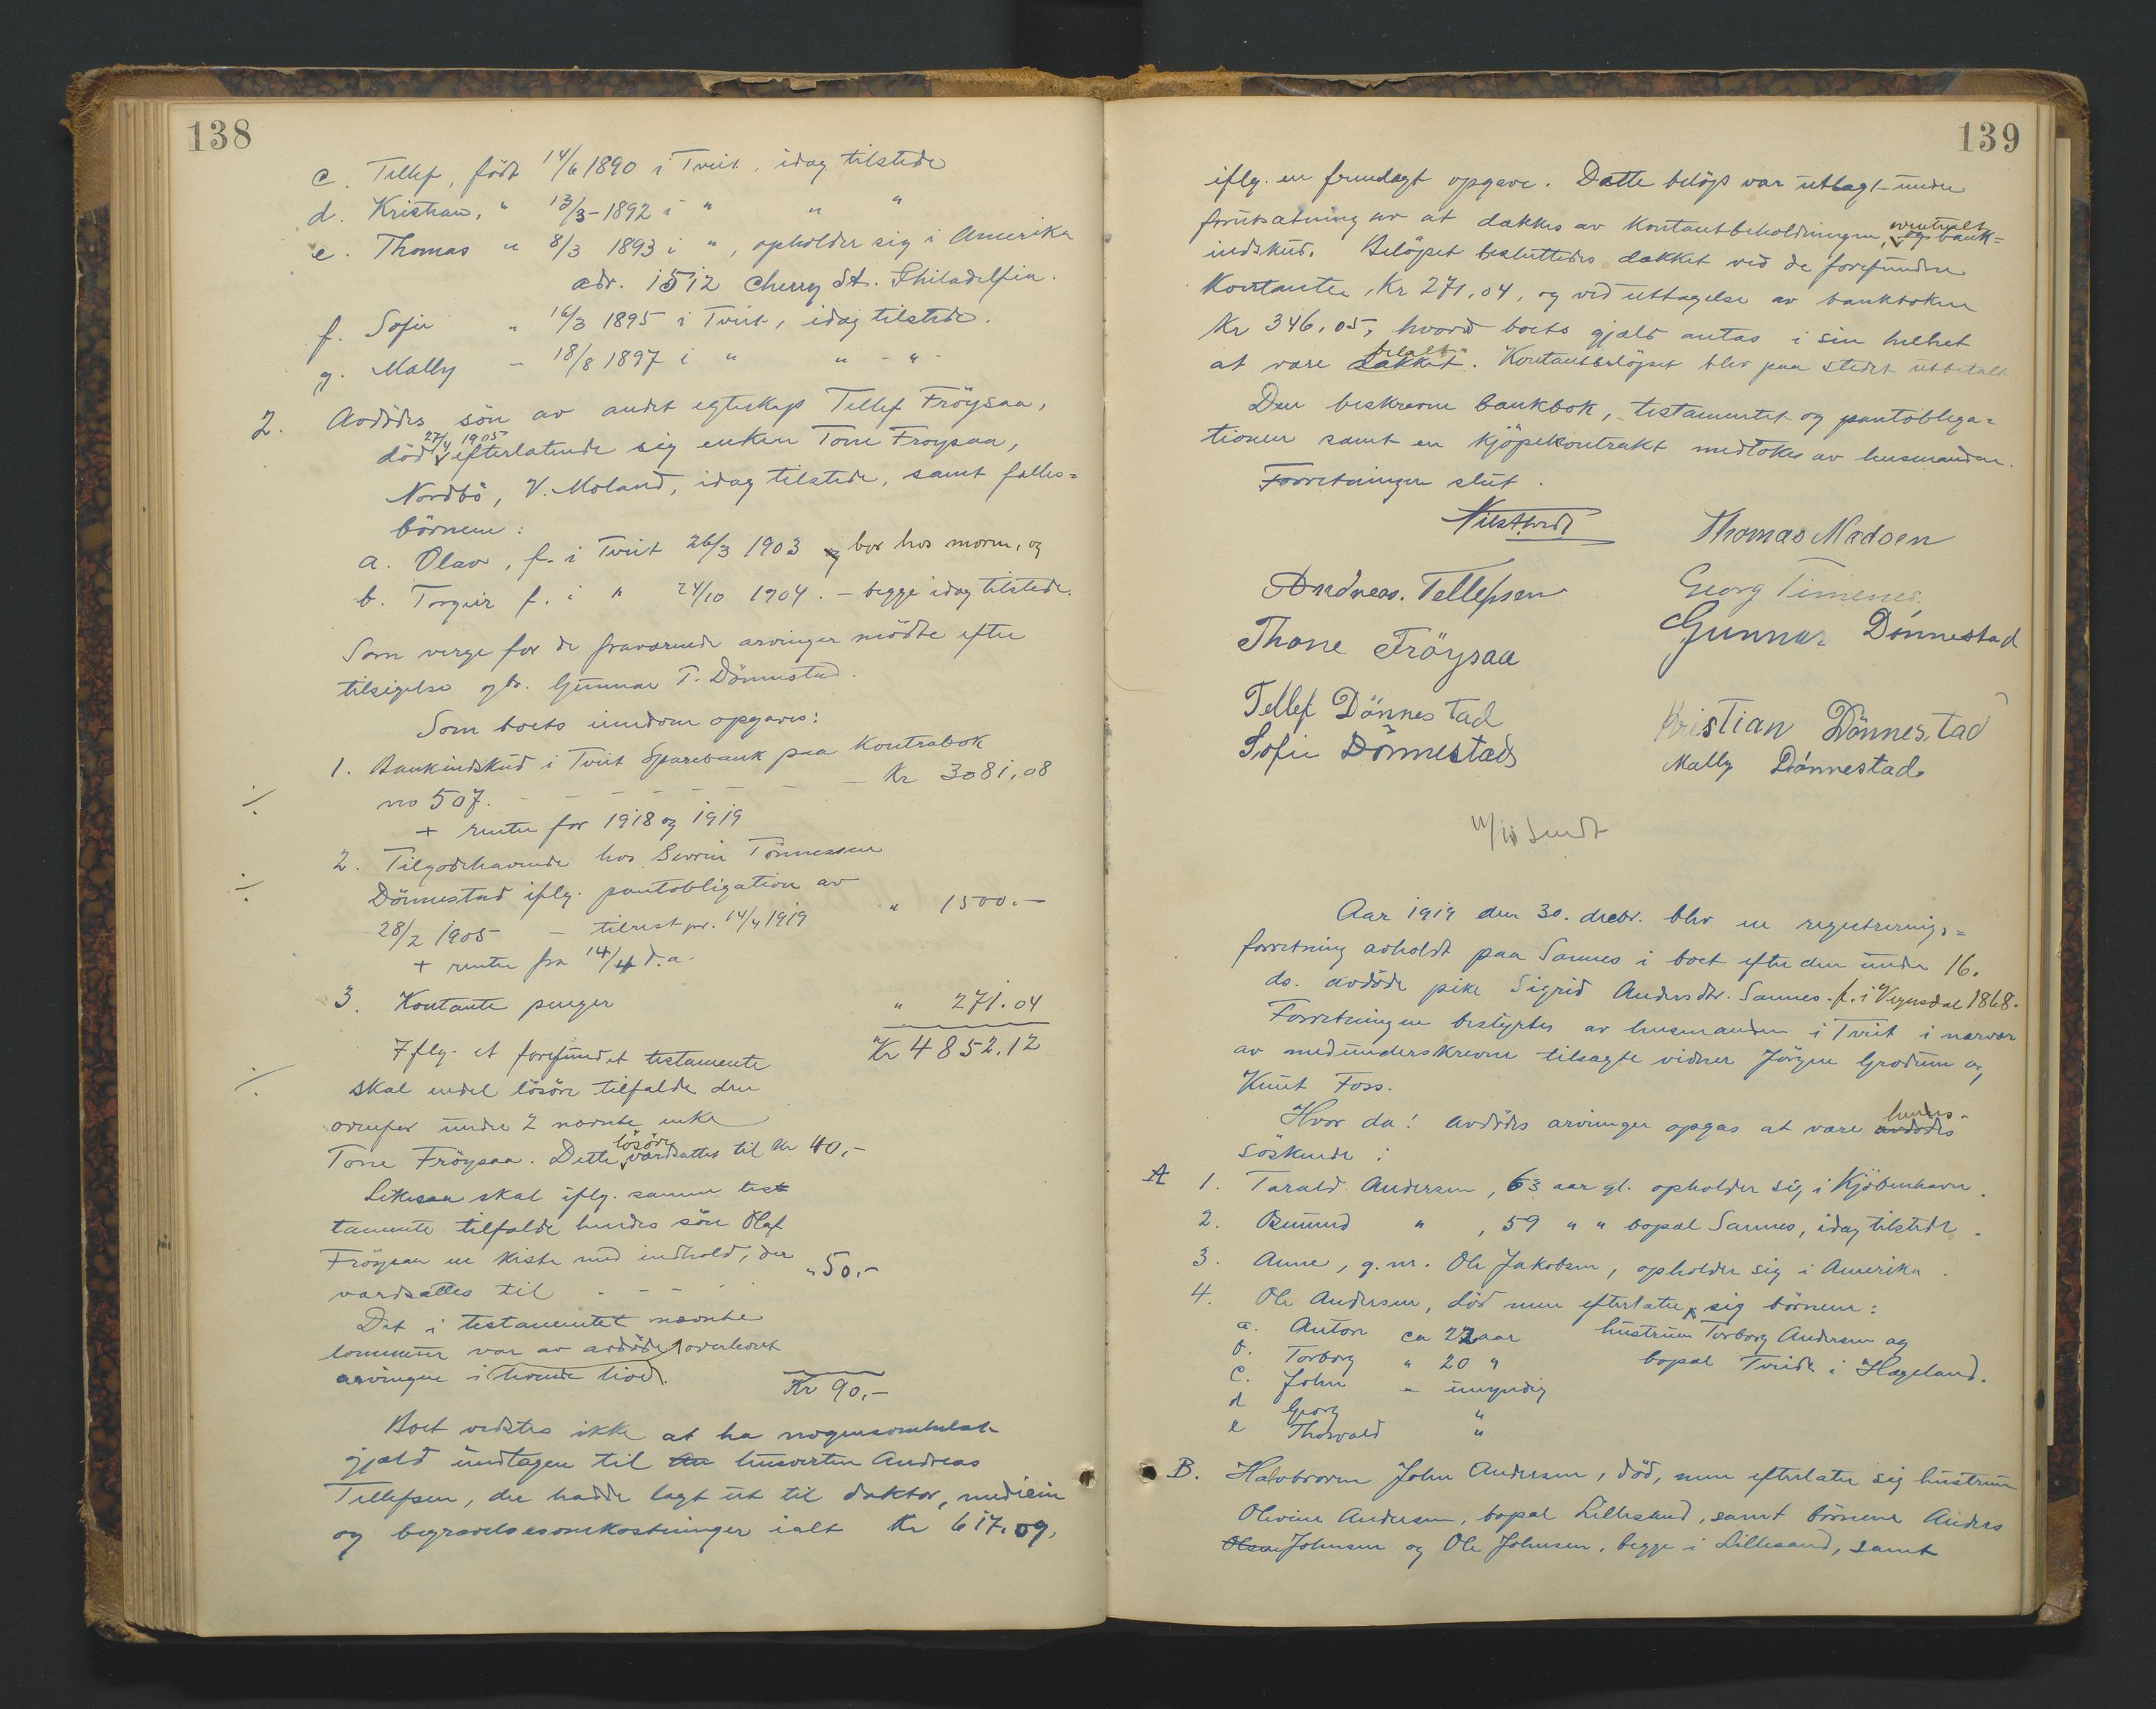 138
c. Tellef, födt 14/6 1890 i Tveit, idag tilstede
d. Kristian, " 13/3-1892 i " " "
e. Thomas " 8/3 1893 i ", opholder sig i Amerika
adr. 1512 Cherry St. Philadelfia.
f. Sofie " 16/3 1895 i Tveit, idag tilstede.
g. Mally - 18/8 1897 i " " - " -
2. Avdödes sön av andet egteskap Tellef Fröysaa,
död 27/4 1905 efterlatende sig enken Tone Froysaa,
Nordbö, V. Moland, idag tilstede, samt fælles-
börnene:
a. Olav, f. i Tveit 26/3 1903 bor hos moren, og
b. Torgeir f. i " 24/10 1904. - begge idag tilstede.
Som verge for de fraværende arvinger mödte efter
tilsigelse gbr. Gunnar T. Dönnestad.
Som boets eiendom opgaves:
1. Bankindskud i Tveit Sparebank paa Kontrabok
no 507. - - - - - - - Kr 3081,08
+ renter for 1918 og 1919
2. Tilgodehavende hos Severin Tönnessen
Dönnestad iflg. pantobligation av
28/2 1905 - tilrest pr. 14/4 1919 " 1500.-
+ renter fra 14/4 d.a.
3. Kontante penger " 271.04
Kr 4852.12
Iflg. et forefundet testamente
skal endel lösöre tilfalde den
ovenfor under 2 nævnte enke
Tone Fröysaa. Dette lösöre værdsattes til kr 40,-
Likesaa skal iflg. samme tes-
tamente tilfalde hendes sön Olaf
Fröysaa en kiste med indhold, der
værdsattes til - - - " 50,-
Det i testamentet nævnte
lommeur var av avdöde overlevert
arvingen i levende live.
Kr 90,-
Boet vedstes ikke at ha nogensomhelst
gjæld undtagen til husverten Andreas
Tellefsen, der hadde lagt ut til doktor, medicin
og begravelsesomkostninger ialt Kr 617.09,
139
iflg. en fremlagt opgave. Dette belöp var utlagt under
forutsætning av at dækkes av Kontantbeholdningen, eventuelt bank-
indskud. Belöpet besluttedes dækket ved de forefundne
Kontanter, Kr 271,04, og ved uttagelse av bankboken
Kr 346.05, hvorved boets gjæld antas i sin helhet
at være betalt. Kontantbelöpet blev paa stedet utbetalt.
Den beskrevne bankbok, testamentet og pantobliga-
tionen samt en kjöpekontrakt medtokes av lensmanden.
Forretningen slut.
Thomas Madsen
Andreas. Tellefsen Georg Timenes.
Thone Fröysaa Gunnar Dönnestad
Tellef Dönnestad Kristian Dönnestad
Sofie Dönnestad Mally Dönnestad.
Aar 1919 den 30. decbr. blev en registrerings-
forretning avholdt paa Sannes i boet efter den under 16.
ds. avdöde pike Sigrid Andersdtr. Sannes. f. i Vegusdal 1868.
Forretningen bestyrtes av lensmanden i Tveit i nærvær
av medunderskrevne tilsagte vidner Jörgen Grödum og
Knut Foss.
Hvor da! Avdödes arvinger opgas at være hendes
söskende:
A 1. Tarald Andersen, 63 aar gl. opholder sig i Kjöbenhavn.
2. Osmund " , 59 " " bopæl Sannes, idag tilstede.
3. Anne, g. m. Ole Jakobsen, opholder sig i Amerika.
4. Ole Andersen, död men efterlater sig börnene:
hustruen Torborg Andersen og
bopæl Tveide i Hægeland.
a. Anton ca 22 aar
b. Torborg " 20 "
c. John - umyndig
d Georg "
e Thorvald "
B. Halvbroren John Andersen, död, men efterlater sig hustruen
Olivine Andersen, bopæl Lillesand, samt börnene Anders
Johnsen og Ole Johnsen, begge i Lillesand, samt